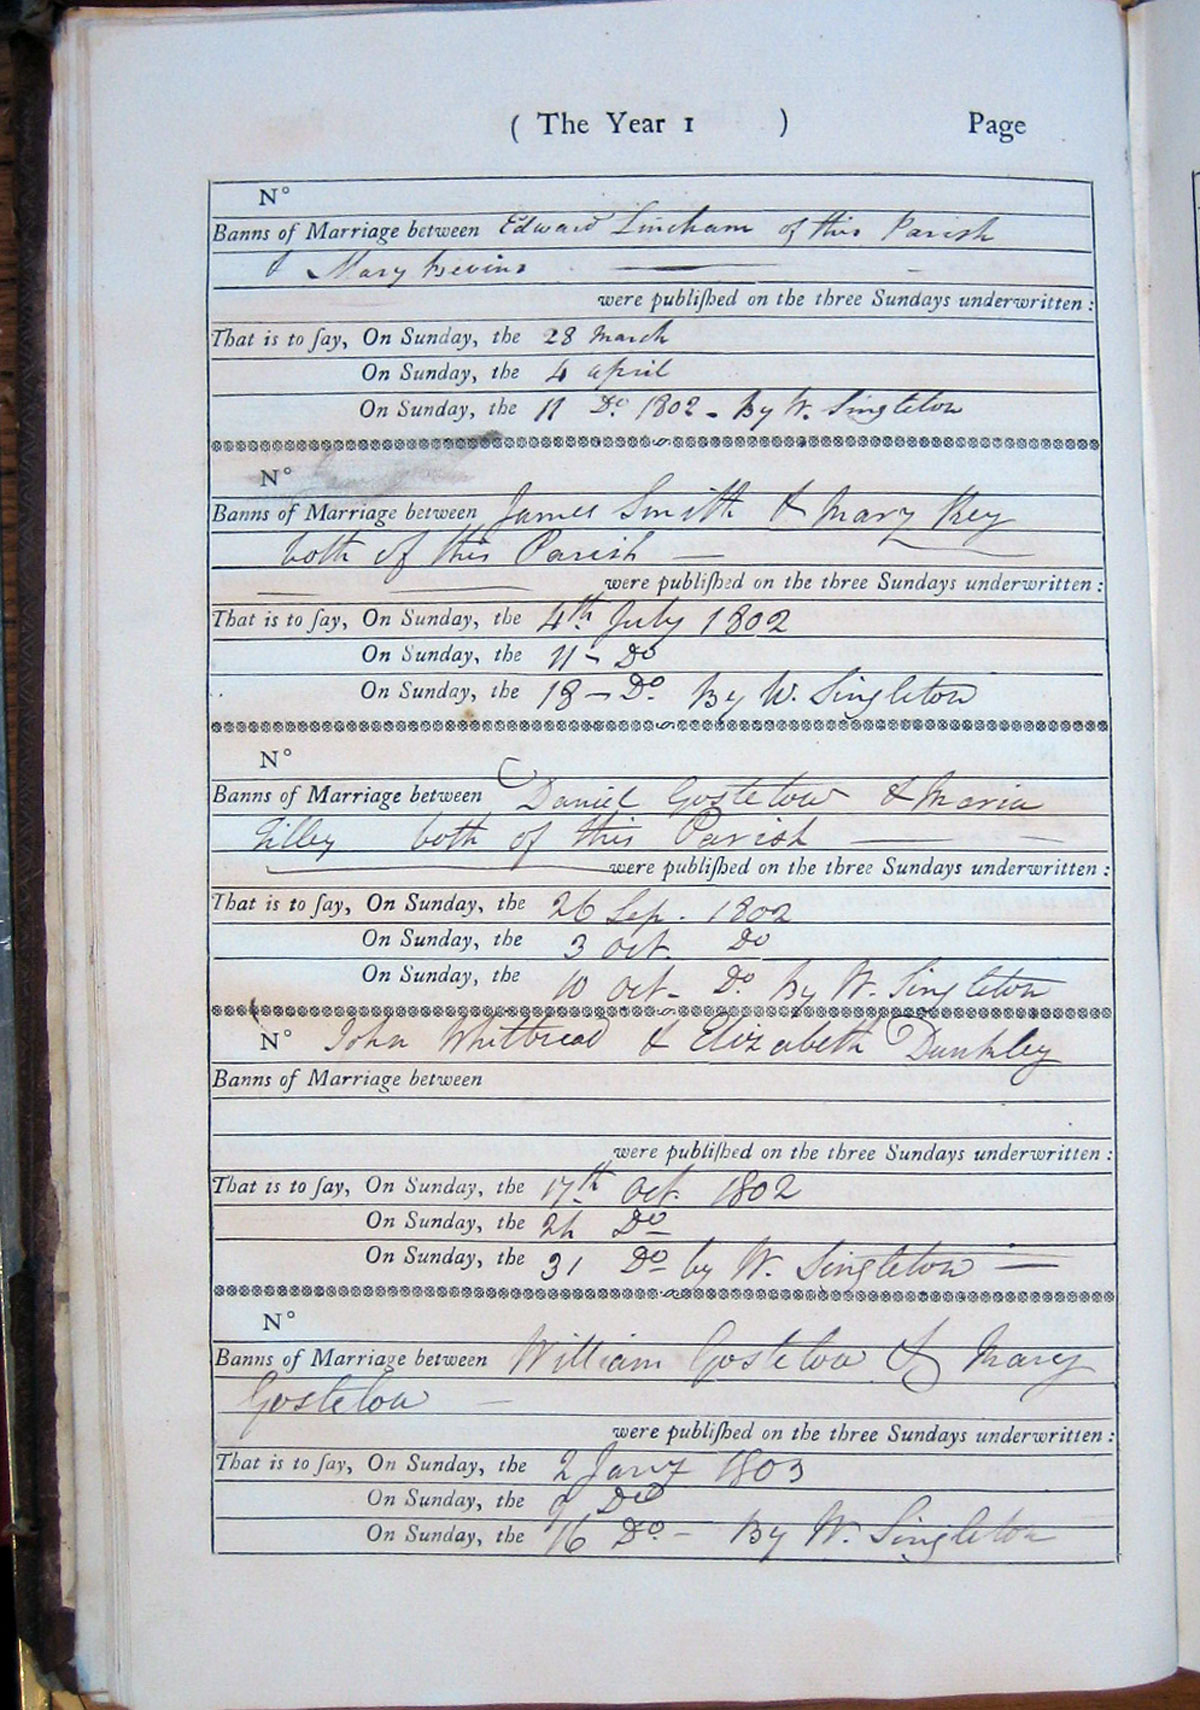 ( The Year 1 ) Page
N°
Banns of Marriage between Edward Lincham of this Parish
& Mary Bevins
were publiſhed on the three Sundays underwritten :
That is to ſay, On Sunday, the 28 March
On Sunday, the 4 april
On Sunday, the 11 Do. 1802 - By W. Singleton
N°
Banns of Marriage between James Smith & Mary Key
both of this Parish —
were publiſhed on the three Sundays underwritten :
That is to ſay, On Sunday, the 4th July 1802
On Sunday, the 11 - Do
On Sunday, the 18 - Do. By W. Singleton
N°
Banns of Marriage between Daniel Gostelow & Maria
Tilley both of this Parish —
were publiſhed on the three Sundays underwritten :
That is to ſay, On Sunday, the 26 Sep. 1802
On Sunday, the 3 oct. Do
On Sunday, the 10 oct - Do. By W. Singleton
N° John Whitbread & Elizabeth Dunkley
Banns of Marriage between
were publiſhed on the three Sundays underwritten :
That is to ſay, On Sunday, the 17th Oct. 1802
On Sunday, the 24 Do
On Sunday, the 31 Do by W. Singleton —
N°
Banns of Marriage between William Gostelow & Mary
Gostelow —
were publiſhed on the three Sundays underwritten :
That is to ſay, On Sunday, the 2 Jany 1803
On Sunday, the 9 Do
On Sunday, the 16 Do. - By W. Singleton